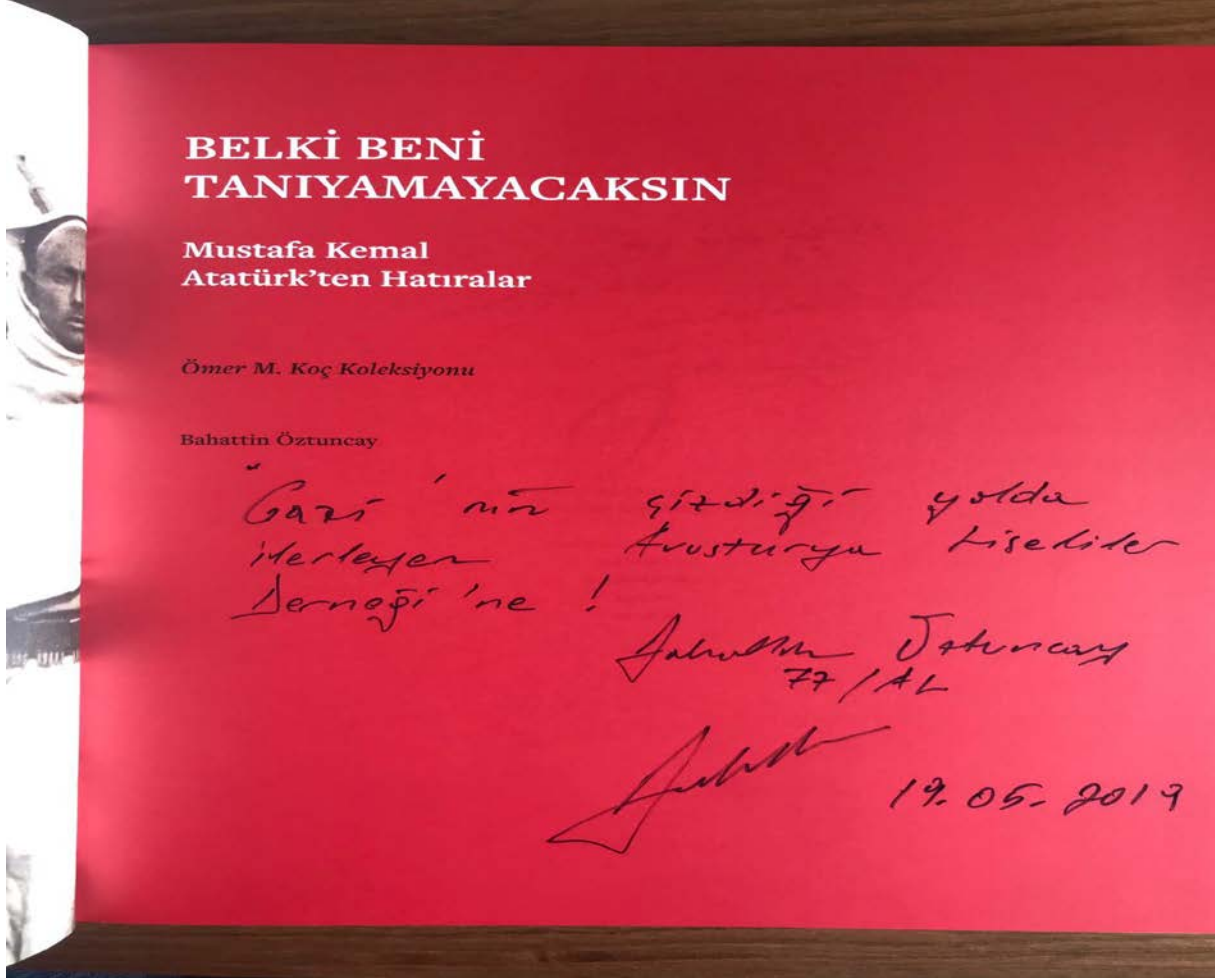 BELKİ BENİ
TANIYAMAYACAKSIN
Mustafa Kemal
Atatürk’ten Hatıralar
Ömer M. Koç Koleksiyonu
Bahattin Öztuncay
"Gazi'nin çizdiği yolda
ilerleyen Avusturya Liseliler
Derneği'ne !
Bahattin Öztuncay
77/AL
19.05.2019